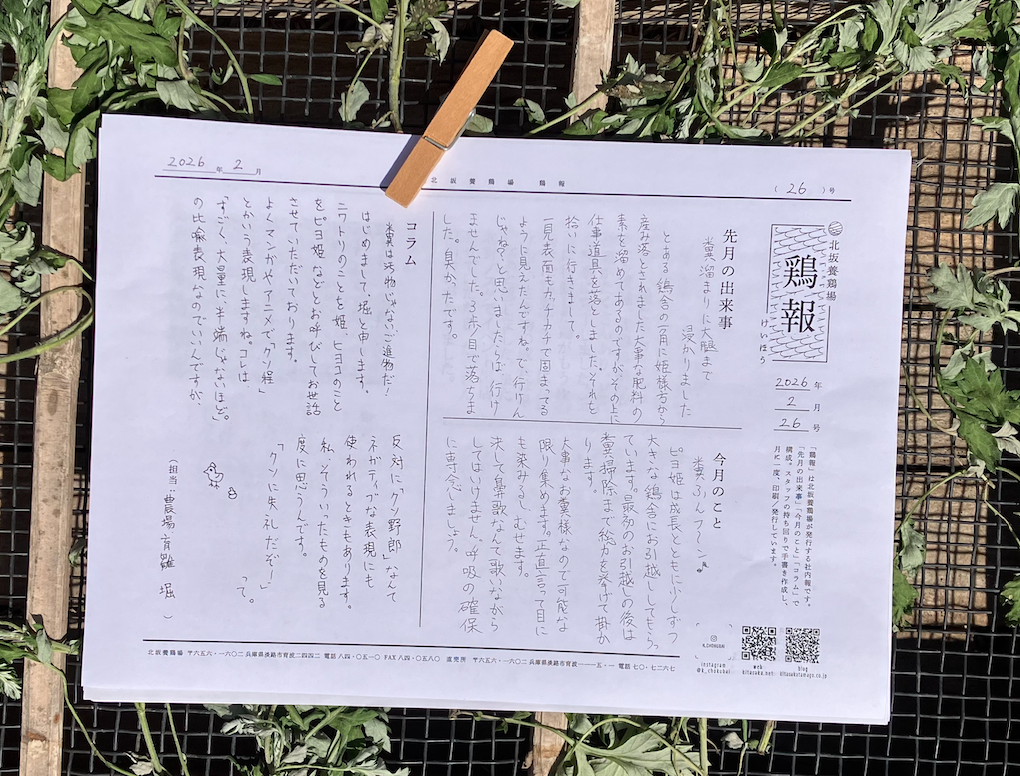 2026年 2月
北坂養鶏場 鶏報
( 26 )号
北坂養鶏場
鶏報
けいほう
2026年
2月
26号
「鶏報」は北坂養鶏場が発行する社内報です。
「先月の出来事」「今月のこと」「コラム」で
構成。スタッフの持ち回りで手書を作成し、
月に一度、印刷/発行しています。
先月の出来事
糞溜まりに大腿まで
浸かりました
とある鶏舎の一角に姫様方から
産み落とされました大事な肥料の
素を溜めてあるのですがその上に
仕事道具を落としました。それを
拾いに行きまして。
一見表面もカッチカチで固まってる
ように見えたんですね。で、行けん
じゃね?と思いましたらば、行け
ませんでした。3歩目で落ちま
した。臭かったです。
今月のこと
糞ふんフ〜ン♪
ピヨ姫は成長とともに少しずつ
大きな鶏舎にお引越ししてもらっ
ています。最初のお引越しの後は
糞掃除まで総力を挙げて掛か
ります。
大事なお糞様なので可能な
限り集めます。正直言って目に
も染みるし、むせます。
決して鼻歌なんて歌いながら
してはいけません。呼吸の確保
に専念しましょう。
コラム
糞は汚物じゃないご進物だ!
はじめまして、堀と申します。
ニワトリのことを姫、ヒヨコのこと
をピヨ姫などとお呼びしてお世話
させていただいております。
よくマンガやアニメで「クソ程」
とかいう表現しますね。コレは
「すごく、大量に、半端じゃないほど」
の比喩表現なのでいいんですが、
反対に「クソ野郎」なんて
ネガティブな表現にも
使われるときもあります。
私、そういったものを見る
度に思うんです。
「クソに失礼だぞー!」
って。
(担当:農場育雛 堀)
K_CHOKUBAI
instagram
@k_chokubai
web
kitasaka.net
blog
kitasakatamago.co.jp
北坂養鶏場 〒656-1602 兵庫県淡路市育波2442 電話 84-0510 FAX 84-0580 直売所 〒656-1602 兵庫県淡路市育波 電話 70-7267